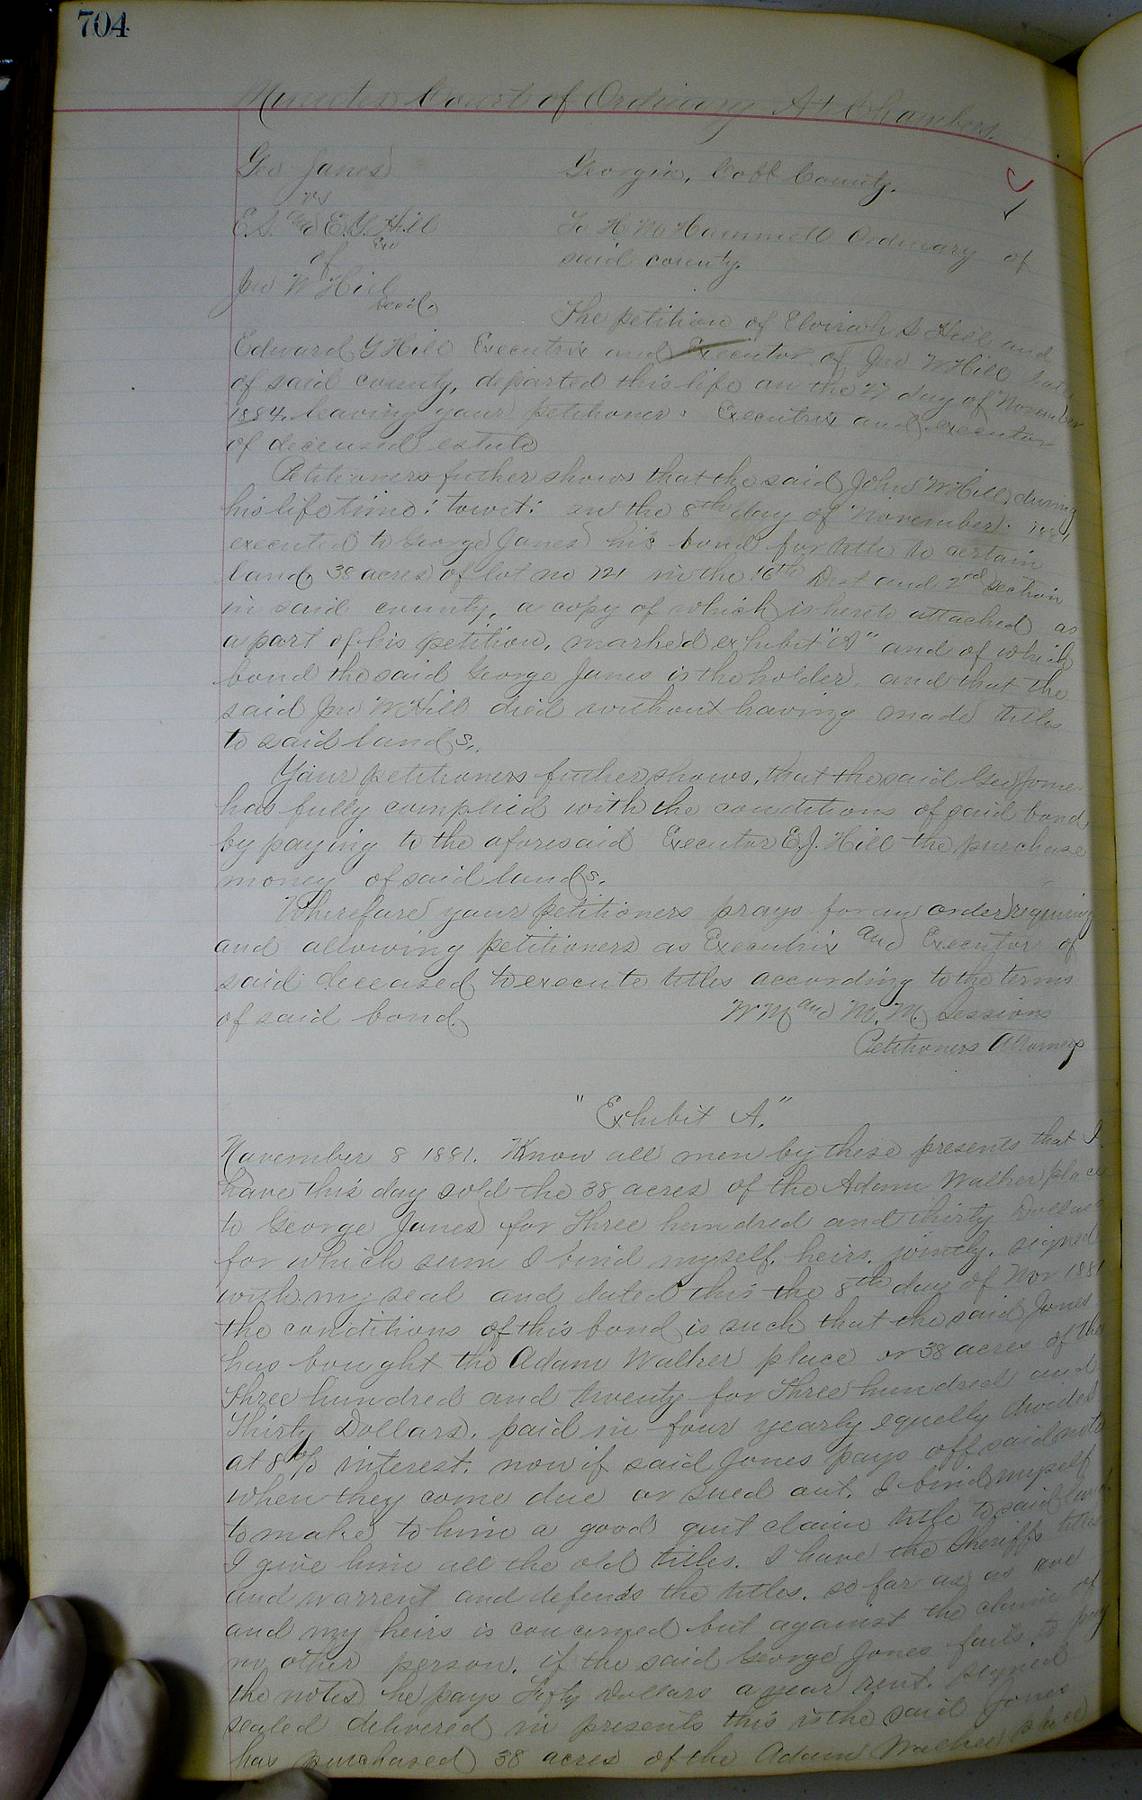 704
Minutes Court of Ordinary At Chambers.
Geo Jones
vs
E.S. and E.G. Hill
Exr
of
Jno W Hill
decd.
Georgia, Cobb County.
To H M Hammett Ordinary of
said county.
The petition of Elvirah S Hill and
Edward G Hill Executrix and Executor of Jno W Hill late
of said county, departed this life on the day of November
1884. leaving your petitioners Executrix and executor
of deceased estate
Petitioners futher shows that the said John W Hill during
his life time: towit: on the 8th day of November 1881
executed to George Jones his bond for title to certain
land, 38 acres of lot no 121 in the 16th Dist and 2nd Section
in said county, a copy of which is hereto attached as
a part of his petition, marked exhibit "A" and of which
bond the said George Jones is the holder, and that the
said Jno W Hill died without having made titles
to said lands.
Your petitioners futher shows, that the said Geo Jones
has fully complied with the conditions of said bond
by paying to the aforesaid Executor E.J. Hill the purchase
money of said lands.
Wherefore your petitioners prays for an order requiring
and allowing petitioners as Executrix and Executor of
said deceased to execute titles according to the terms
of said bond.
W M and M. M. Sessions
Petitioners Attorneys
"Exhibit A."
November 8 1881. Know all men by these presents that I
have this day sold the 38 acres of the Adam Walker place
to George Jones for Three hundred and thirty Dollars
for which sum I bind myself, heirs, jointly. signed
with my seal and dated this the 8th day of Nov 1881
the conditions of this bond is such that the said Jones
has bought the Adam Walker place or 38 acres of the
Three hundred and twenty for Three hundred and
Thirty Dollars. paid in four yearly equelly divided
at 8 % interest. now if said Jones pays off said notes
when they come due or sued out. I bind myself
to make to him a good quit claim title to said land
I give him all the old titles. I have the Sheriffs titles
and warrent and defends the titles. so far as as me
and my heirs is concerned but against the claim of
no other person. if the said George Jones fails to pay
the notes he pays Fifty Dollars a year rent. signed
sealed delivered in presents this is the said Jones
has purchased 38 acres of the Adam Walker place